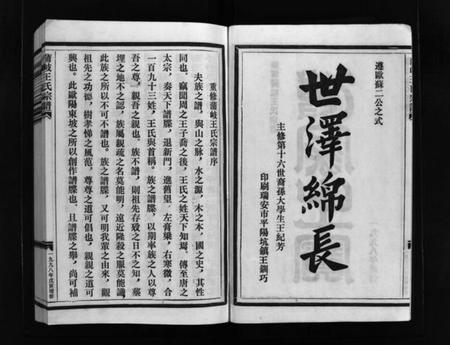 遵歐蘇二公之式
世澤綿長
主修第十六世裔孫大學生王紀芳
印刷瑞安市平陽坑鎮王鋼巧
重修蒲岐王氏宗譜序
夫族之譜，與山之脉，水之源，木之本，國之史，其性
同也。竊聞周之王子喬之後，王氏之姓天下知焉，傳至唐之
太宗，奏天下譜牒，退新門，進舊望，左膏粱，右寒微，合
一百九十三姓，王氏與首稱。族之譜牒，以期率族之人以尊
吾之尊，親吾之親也。族不譜，則祖先存殁之日不之知，墓
埋之地不之認，族屬親疏之名莫能明，遠近隆殺之服莫能識，
此族之所以不可不譜也。族之譜牒，又可明我輩之由來，觀
祖先之功德，樹孝悌之風范，尊尊之道可倡也，親親之道可
興也。此歐陽東坡之所以創作譜牒也，且譜牒之舉，尚可補
蒲岐王氏宗譜
一九九八年戊寅增修